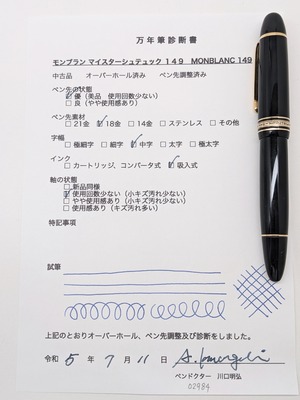 万年筆診断書
モンブラン マイスターシュテュック 149 MONBLANC 149
中古品 オーバーホール済み ペン先調整済み
ペン先の状態
☑優（美品 使用回数少ない）
□良（やや使用感あり）
ペン先素材
□21金 ☑18金 □14金 □ステンレス □その他
字幅
□極細字 □細字 ☑中字 □太字 □極太字
インク
□カートリッジ、コンバータ式 ☑吸入式
軸の状態
□新品同様
☑使用回数少ない（小キズ汚れ少ない）
□やや使用感あり（小キズ汚れ少ない）
□使用感あり（キズ汚れ多い）
特記事項
試筆
上記のとおりオーバーホール、ペン先調整及び診断をしました。
令和 5 年 7 月 11 日
ペンドクター 川口明弘
02984